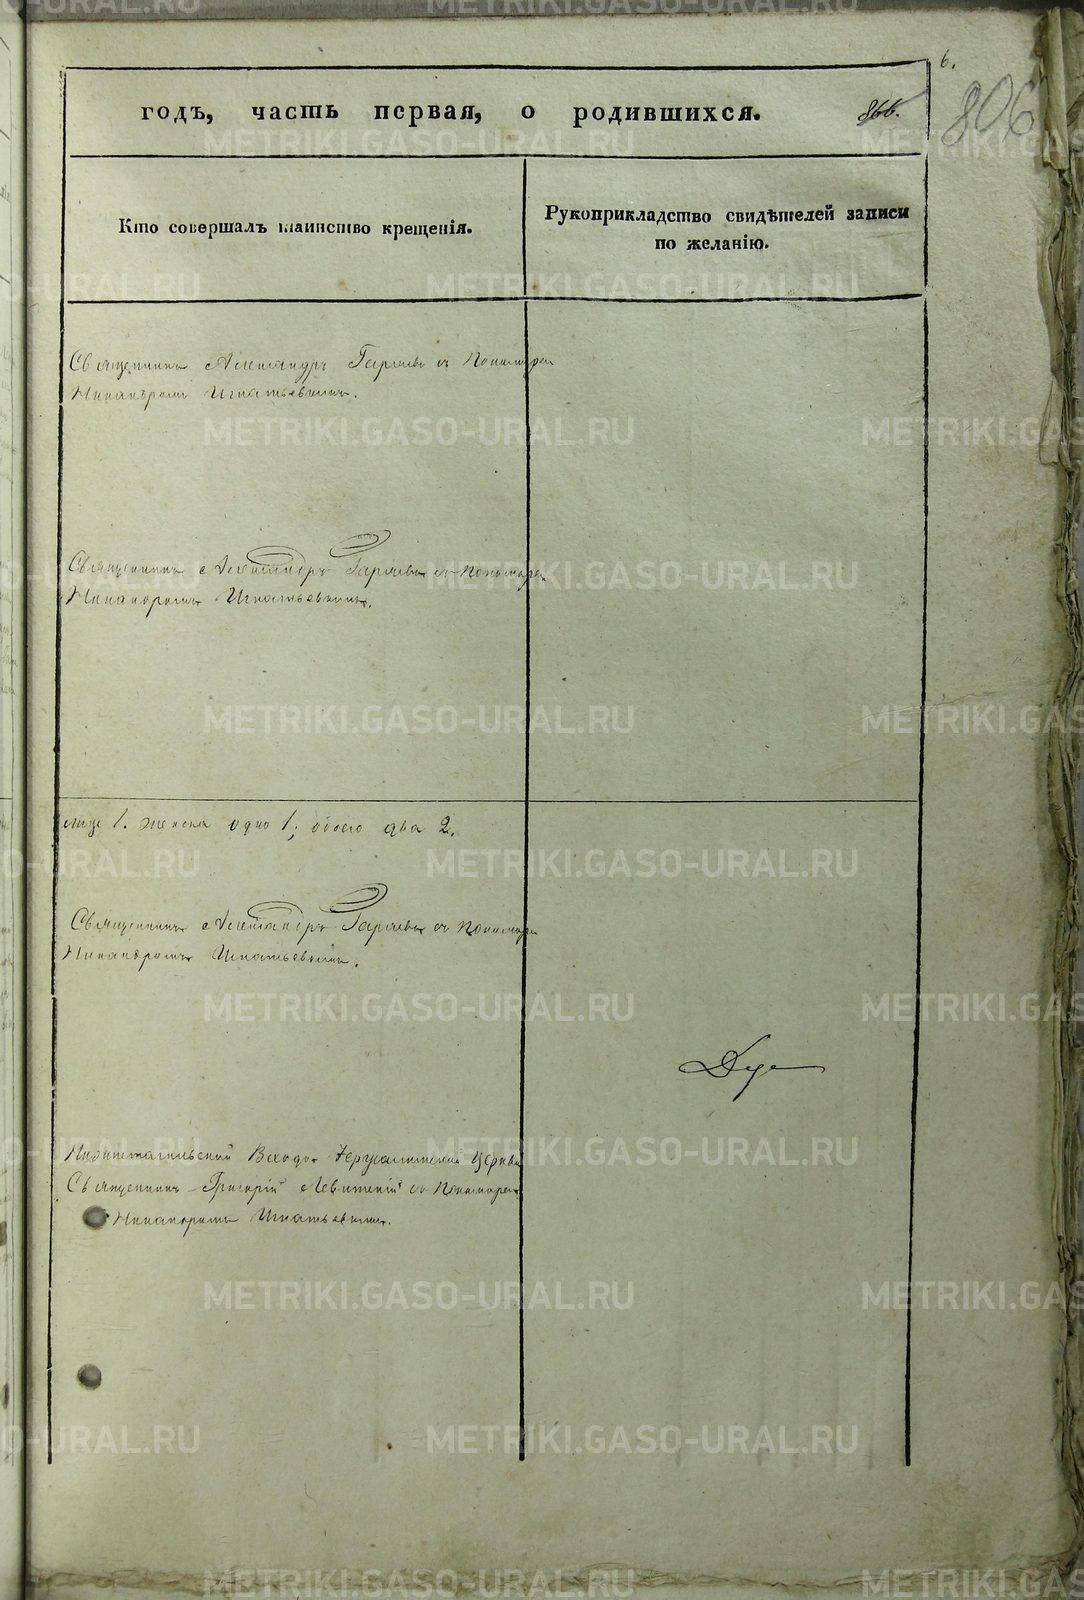 6.
годъ, часть первая, о родившихся. 866. 806
Кто совершалъ таинство крещенія.
Рукоприкладство свидѣтелей записи
по желанію.
Священникъ Александръ Гаряевъ съ Пономаремъ
Никаноромъ Игнатьевымъ.
Священникъ Александръ Гаряевъ съ пономаремъ
Никаноромъ Игнатьевымъ.
1. женска одно 1; обоего два 2.
Священникъ Александръ Гаряевъ съ пономаремъ
Никаноромъ Игнатьевымъ.
Нижнетагильской Входо-Іерусалимской церкви
Священникъ Григорій Левитскій съ Пономаремъ
Никаноромъ Игнатьевымъ.
METRIKI.GASO-URAL.RU